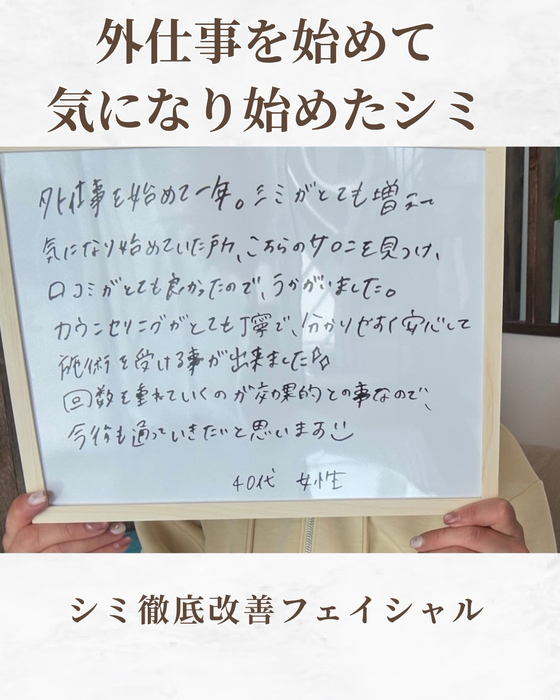 外仕事を始めて
気になり始めたシミ
外仕事を始めて一年。シミがとても増えて
気になり始めていた所、こちらのサロンを見つけ、
口コミがとても良かったので、うかがいました。
カウンセリングがとても丁寧で、分かりやすく安心して
施術を受ける事が出来ました
回数を重ねていくのが効果的との事なので、
今後も通っていきたいと思います
40代 女性
シミ徹底改善フェイシャル